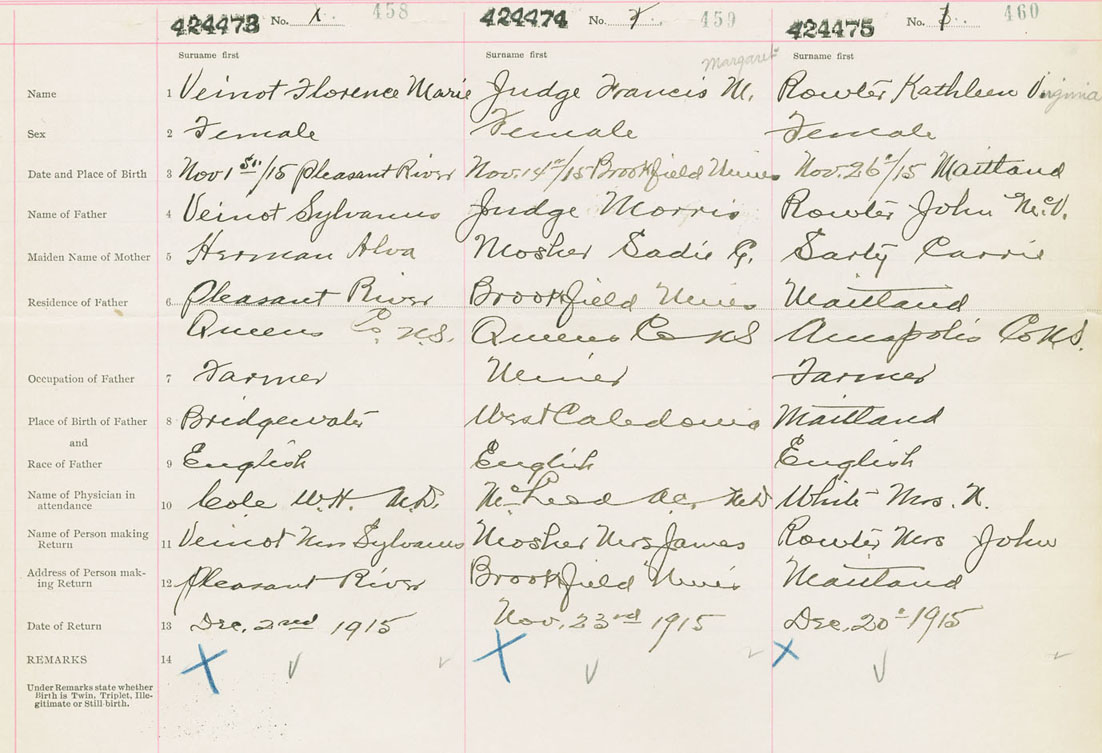 424473 No. 1 458 424474 No. 459 424475 No. 460
Surname first Surname first Surname first
Margaret
Name 1 Veinot Florence Marie Judge Francis M. Rowter Kathleen Virginia
Sex 2 Female Female Female
Date and Place of Birth 3 Nov 1st/15 Pleasant River Nov. 14th/15 Brookfield Mines Nov. 26th/15 Maitland
Name of Father 4 Veinot Sylvanus Judge Morris Rowter John McV.
Maiden Name of Mother 5 Herman Alva Mosher Sadie G. Sarty Carrie
Residence of Father 6 Pleasant River Brookfield Mines Maitland
Queens Co. N.S. Queens Co NS Annapolis Co N.S.
Occupation of Father 7 Farmer Miner Farmer
Place of Birth of Father 8 Bridgewater West Caledonia Maitland
and
Race of Father 9 English English English
Name of Physician in
attendance 10 Cole W.H. M.D. McLeod MD White Mrs. N.
Name of Person making
Return 11 Veinot Mrs Sylvanus Mosher Mrs James Rowter Mrs John
Address of Person mak-
ing Return 12 Pleasant River Brookfield Mines Maitland
Date of Return 13 Dec. 2nd 1915 Nov. 23rd 1915 Dec. 20th 1915
REMARKS 14
Under Remarks state whether
Birth is Twin, Triplet, Ille-
gitimate or Still-birth.